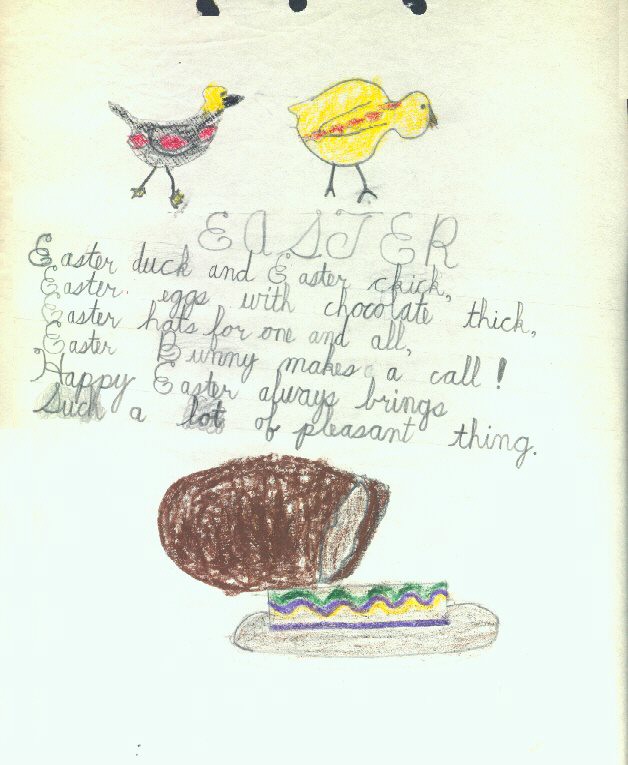 EASTER
Easter duck and Easter chick,
Easter eggs with chocolate thick,
Easter hats for one and all,
Easter Bunny makes a call!
Happy Easter always brings
Such a lot of pleasant thing.